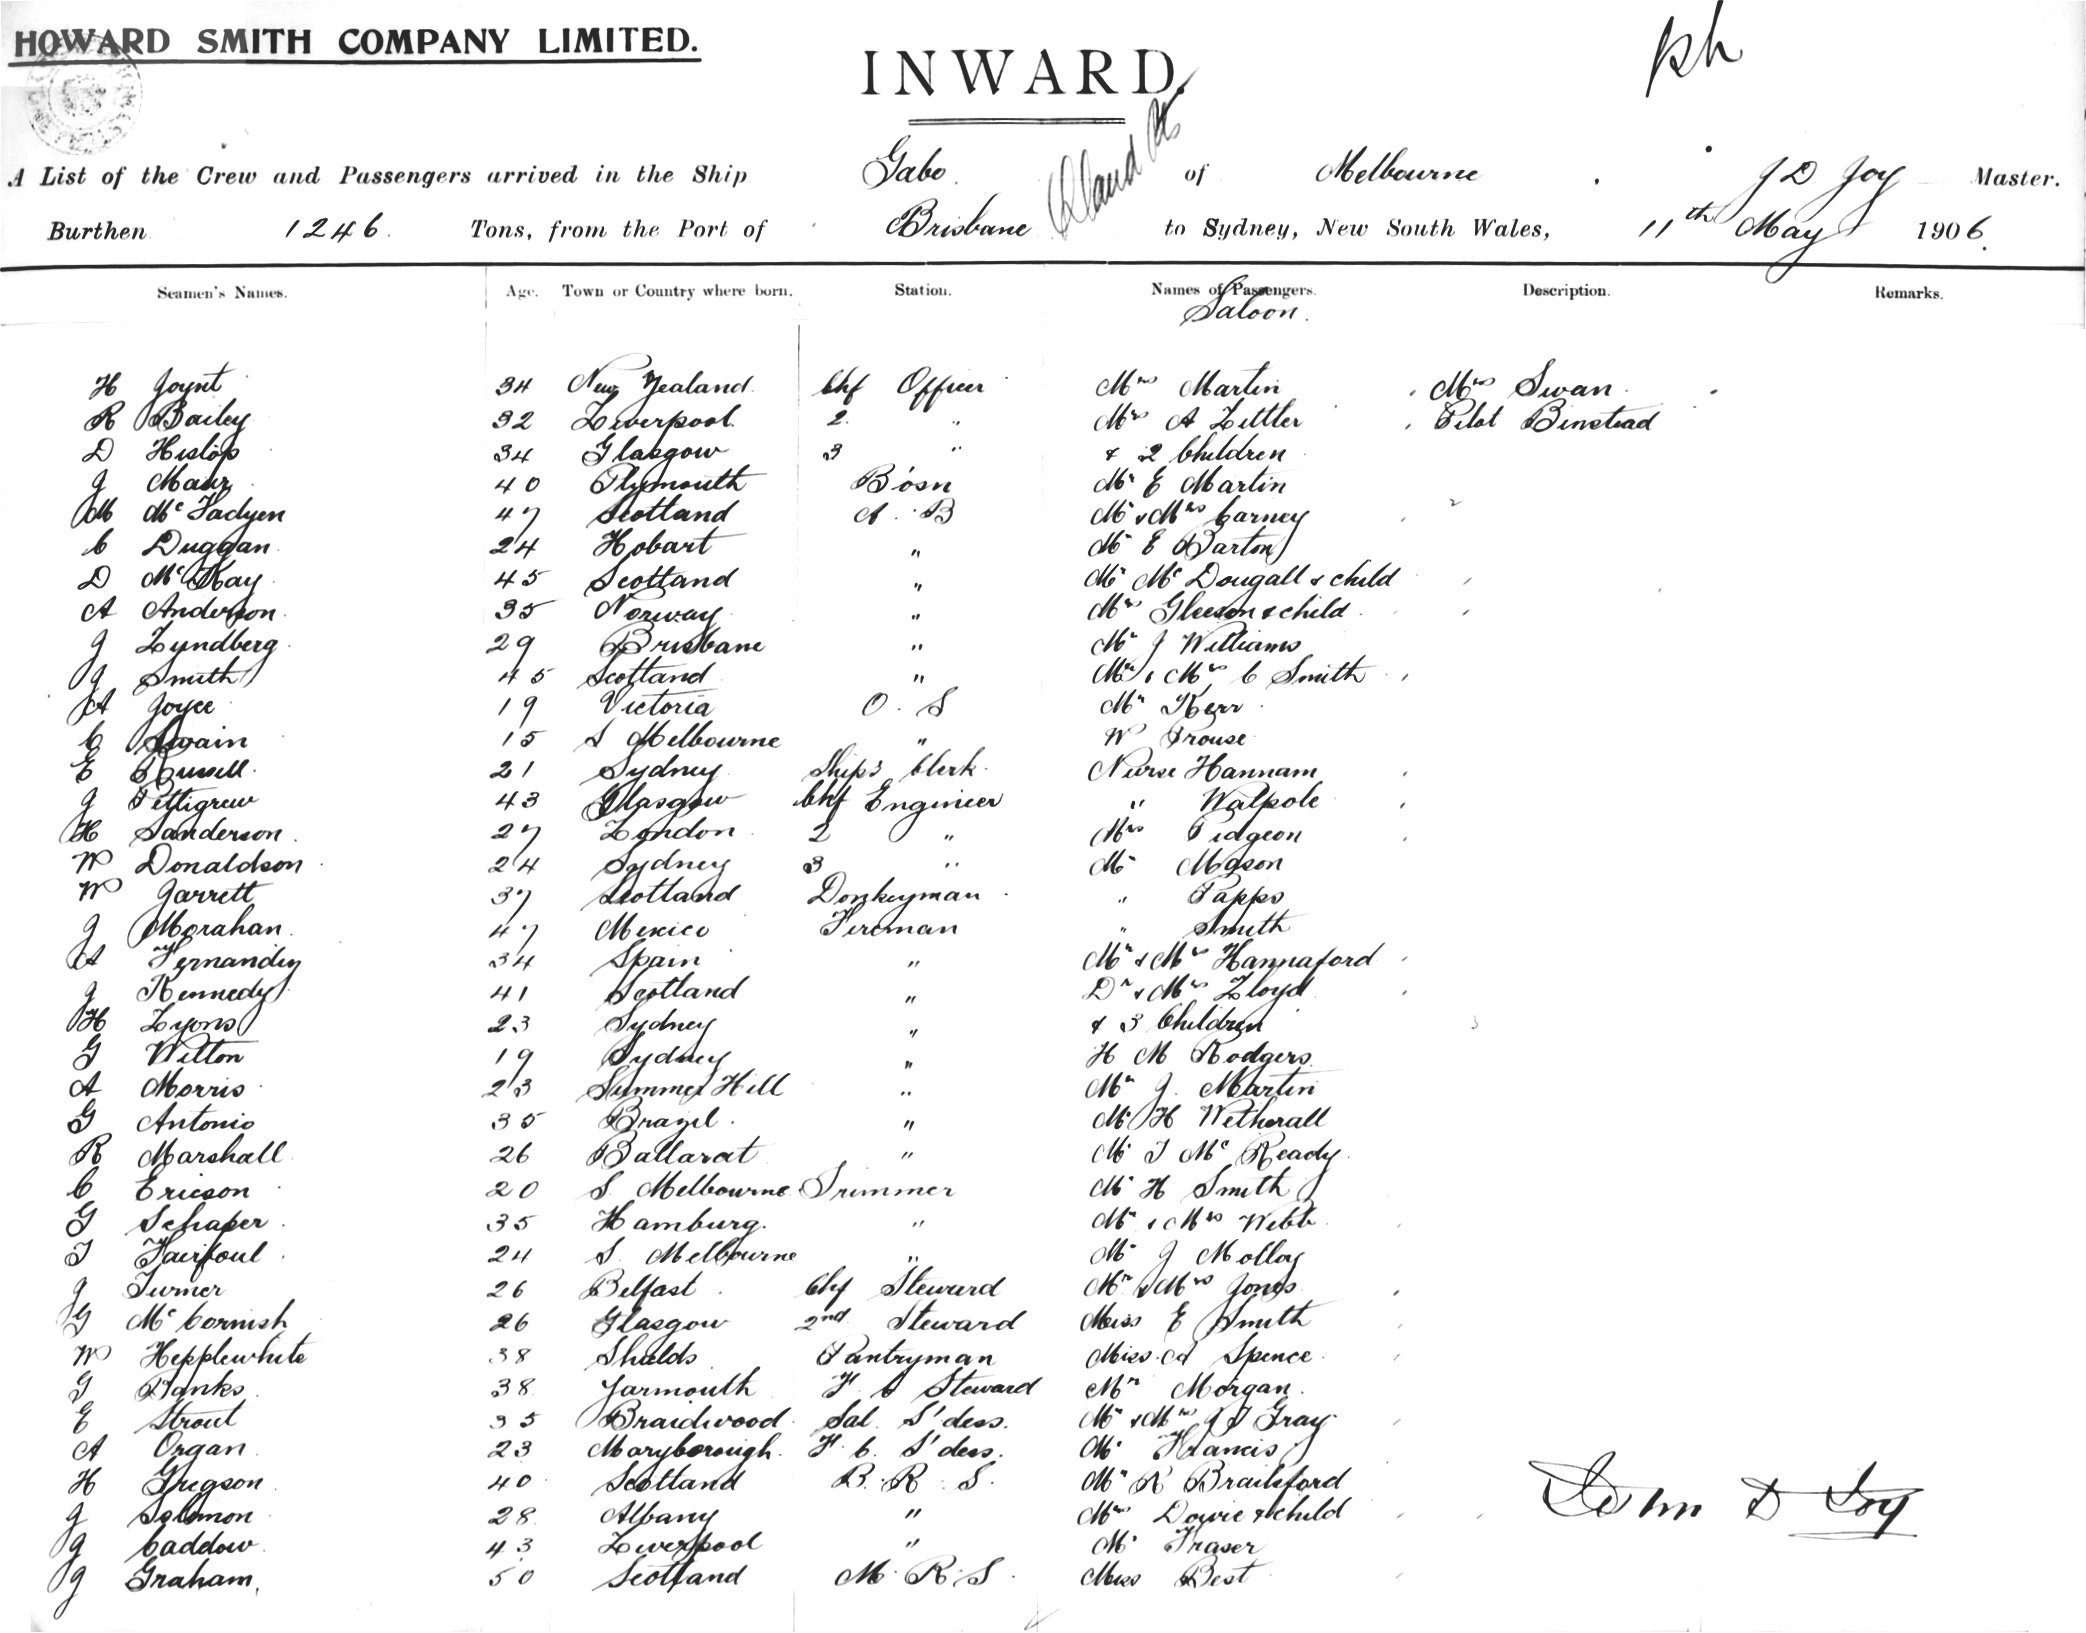 HOWARD SMITH COMPANY LIMITED.
INWARD.
A List of the Crew and Passengers arrived in the Ship Gabo of Melbourne J D Joy Master.
Burthen 1246 Tons, from the Port of Brisbane to Sydney, New South Wales, 11th May 1906.
Seamen's Names. Age. Town or Country where born. Station. Names of Passengers. Description. Remarks.
Saloon.
H Joynt 34 New Zealand Chf Officer Mrs Martin Mrs Swan
R Bailey 32 Liverpool 2 " Mrs A Zittler Pilot Binstead
D Hislop 34 Glasgow 3 " & 2 Children
J Mair 40 Plymouth Bosn Mr E Martin
M McFadyen 47 Scotland A B Mr & Mrs Carney
C Duggan 24 Hobart " Mr E Barton
D McKay 45 Scotland " Mr McDougall & child
A Anderson 35 Norway " Mrs Gleeson & child
J Lyndberg 29 Brisbane " Mr J Williams
J Smith 45 Scotland " Mr & Mrs C Smith
A Joyce 19 Victoria O. S Mr Kerr
C Swain 15 S Melbourne " W Prouse
E Russell 21 Sydney Ship's Clerk Nurse Hannam
J Pettigrew 43 Glasgow Chf Engineer " Walpole
H Sanderson 27 London 2 " Mrs Pidgeon
W Donaldson 24 Sydney 3 " Mr Mason
W Jarrett 37 Scotland Donkeyman " Papps
J Morahan 47 Mexico Fireman " Smith
A Fernandiz 34 Spain " Mr & Mrs Hannaford
J Kennedy 41 Scotland " Dr & Mrs Lloyd
H Lyons 23 Sydney " & 3 Children
G Witton 19 Sydney " H M Rodgers
A Morris 23 Summer Hill " Mr J. Martin
G Antonio 35 Brazil " Mr H Witherall
R Marshall 26 Ballarat " Mr T McReady
C Ericson 20 S Melbourne Trimmer Mr H Smith
G Schaper 35 Hamburg " Mr & Mrs Webb
T Fairfoul 24 S Melbourne " Mr J Molloy
J Turner 26 Belfast Chf Steward Mr & Mrs Jones
G McCornish 26 Glasgow 2nd Steward Miss E Smith
W Hepplewhite 38 Shields Pantryman Miss A Spence
G Banks 38 Yarmouth F C Steward Mr Morgan
E Strout 35 Braidwood Sal S'dess. Mr & Mrs J T Gray
A Organ 23 Maryborough F. C. S'dess. Mr Francis
H Gregson 40 Scotland B. R. S. Mr R Brailsford
J Solomon 28 Albany " Mrs Dowie & child
J Caddow 43 Liverpool " Mr Fraser
J Graham 50 Scotland M. R. S. Miss Best
John D Joy